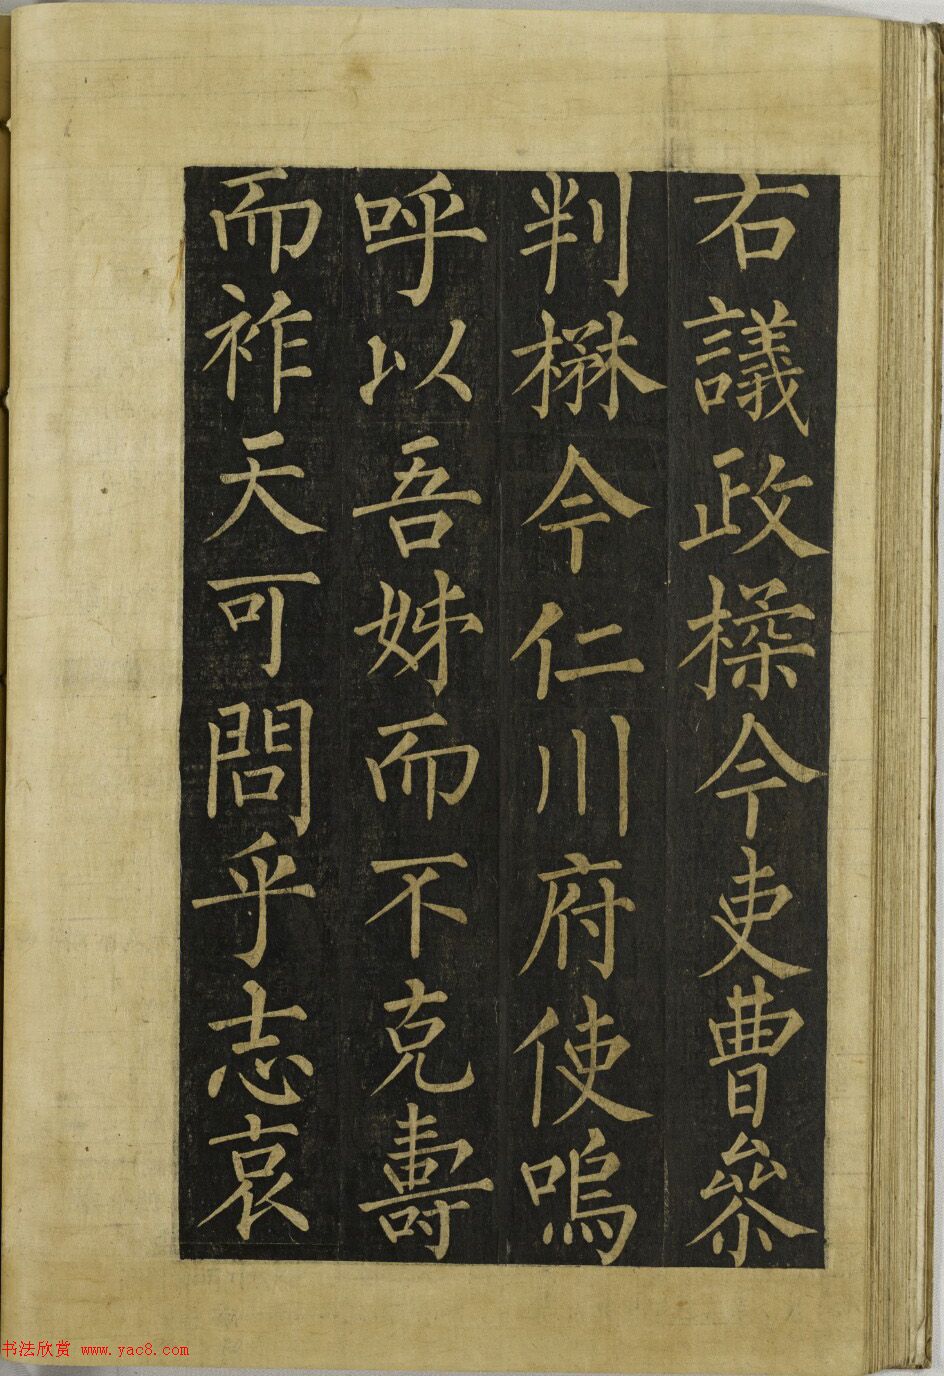 右議政㮤今吏曹參
判楙今仁川府使嗚
呼以吾姊而不克壽
而祚天可問乎志哀
书法欣赏 www.yac8.com